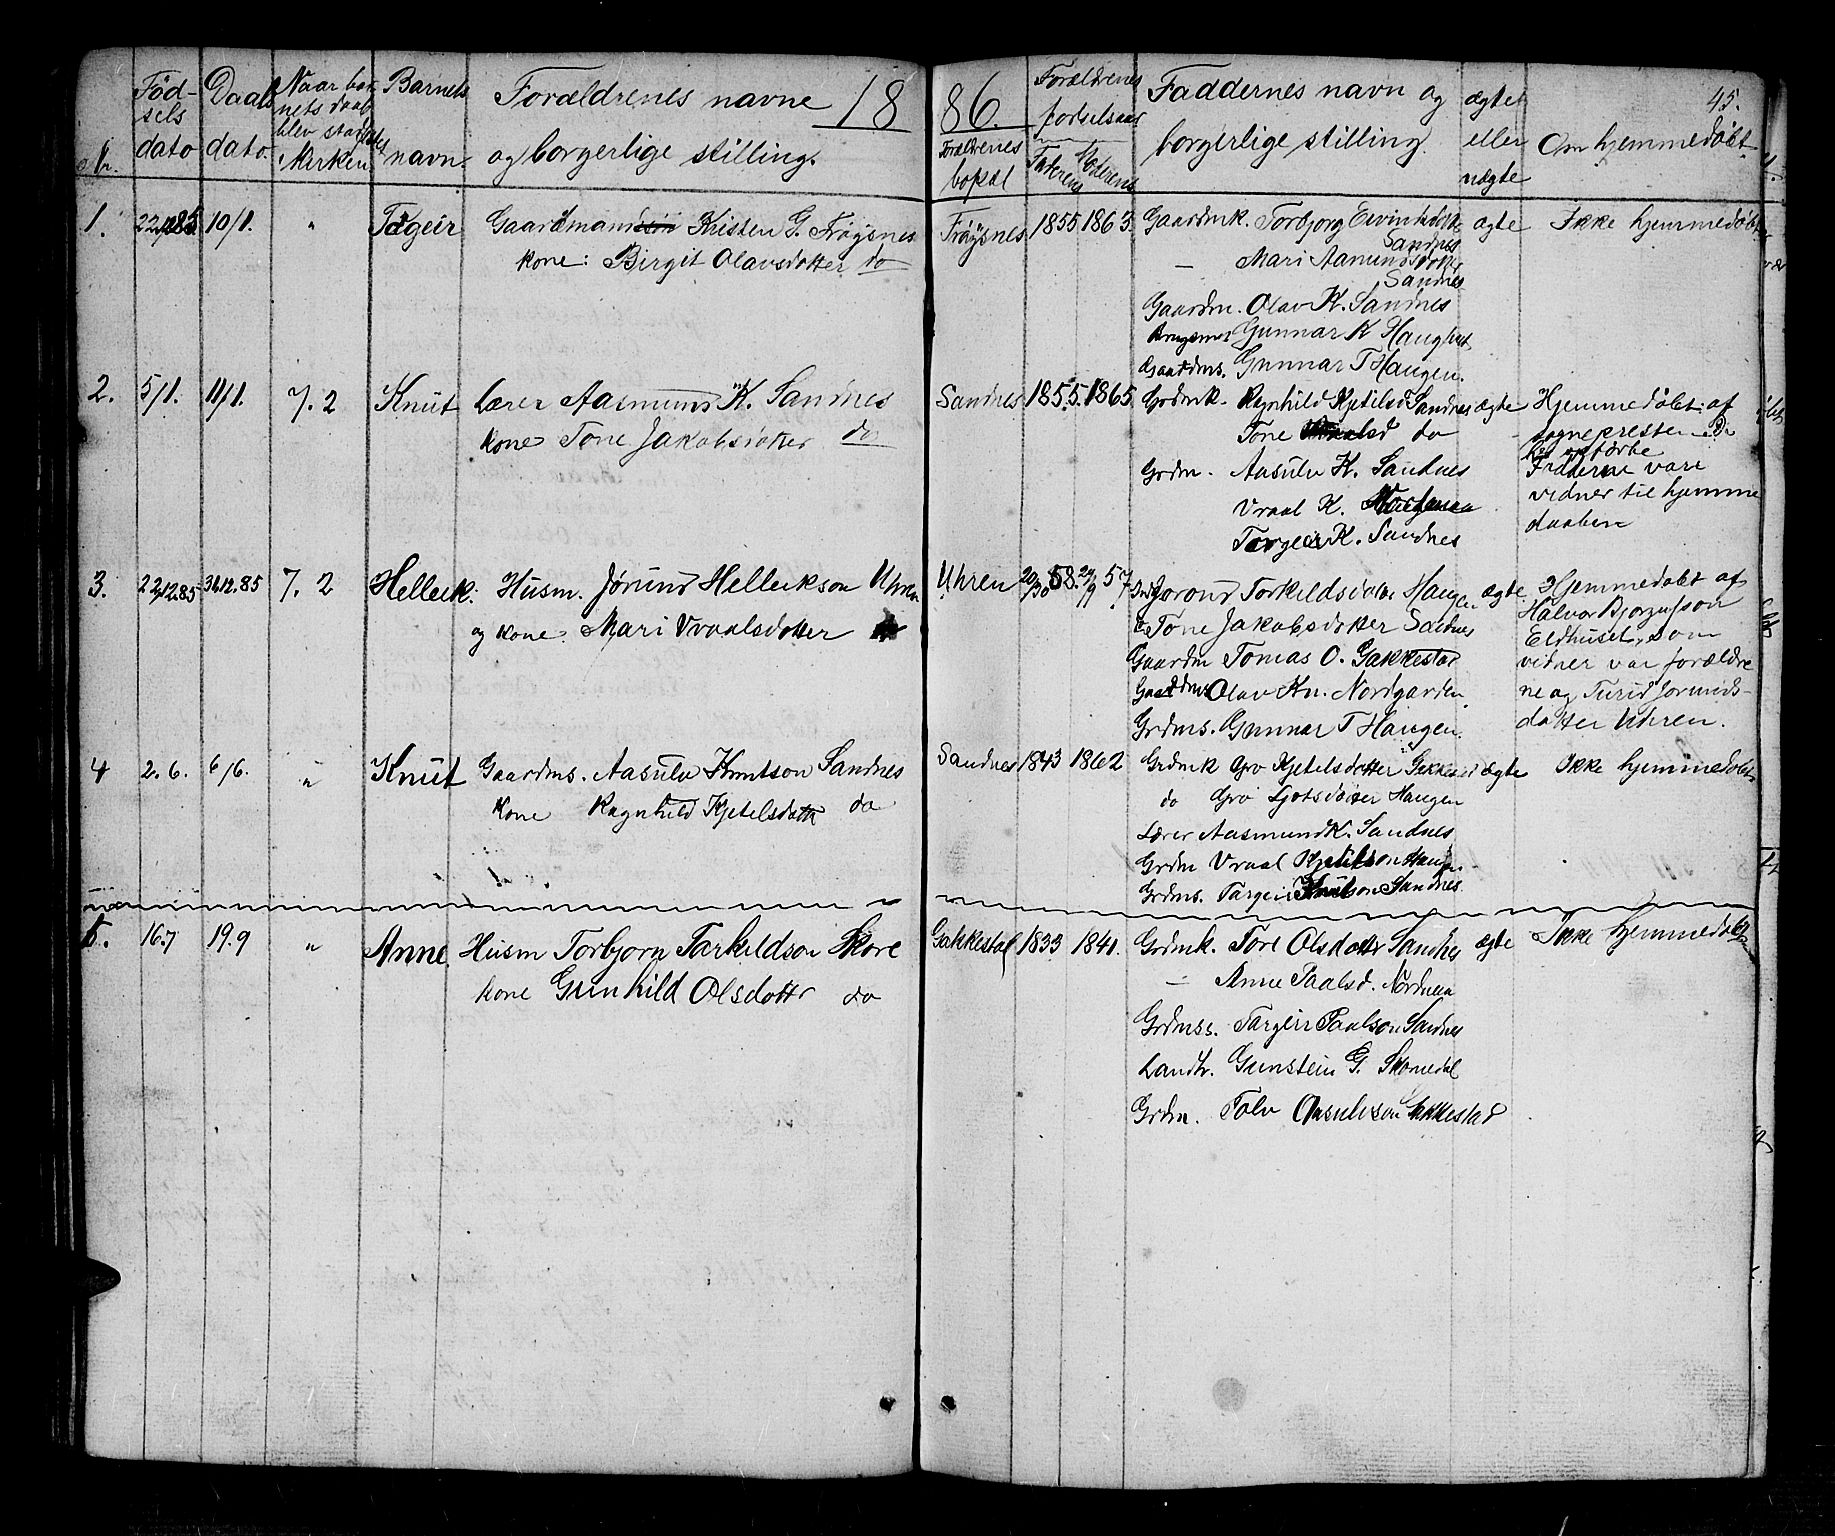 Nr.
Fød-
sels
dato
Daabs
dato.
Naar bar
nets daab
blev stadfæstet
i Kirken
Barnets
navn
Forældrenes navne
og borgerlige stilling.
18
86.
Forældrenes
bopæl
Forældrenes
fødselsaar
Faderens
Moderens
Faddernes navn og
borgerlige stilling.
ægte
eller
uægte
45.
Om hjemmedøbt
1. 22/12 85 10/1. " Gaardmand Kristen G. Frøysnes
kone: Birgit Olavsdotter do
Frøysnes 1855 1863 Gaardmk. Torbjorg Eivindsdotter
Sandnes
— Mari Aamundsdotter
Sandnes
Gaardm. Olav K. Sandnes
Gunnar K
Gaardms. Gunnar T Haugen.
ægte Ikke hjemmedøbt
2. 5/1. 11/1. 7. 2 Knut Lærer Aasmund K. Sandnes
kone Tone Jakobsdotter do
Sandnes 1855. 1865 Grdmk. Ragnhild Kjetilsd Sandnes
Tone do
Grdm. Aasulv K. Sandnes
Vraal K.
Torgeir K. Sandnes
ægte Hjemmedøbt af
sognepresten
Fadderne vare
vidner til hjemme
daaben
3. 22.12.85 31.12.85 7. 2 Helleik. Husm. Jørund Helleikson Uhren
og kone. Mari Vraalsdotter
Uhren 20/30 58. 24/9 57 Jorond Torkildsdotter Haugen
Tone Jakobsdotter Sandnes
Gaardm Tomas O. Gakkestad
Gaardms Olav Kn. Nordgarden
Grdms. Gunnar T Haugen.
ægte. Hjemmedøbt af
Halvor Bjorgufson
Eldhuset, som
vidner var forældre
ne og Turid Jorunds-
datter Uhren.
4 2. 6. 6/6. " Knut Gaardms. Aasulv Knutson Sandnes
kone Ragnhild Kjetelsdotter do
Sandnes 1843 1862 Grdmk Gro Kjetelsdotter Gakkestad
do Gro Ljotsdotter Haugen
Lærer Aasmund K. Sandnes
Grdm Vraal Kjetilson Haugen
Grdms. Targeir Knutson Sandnes
ægte Ikke hjemmedøbt
5. 16.7 19.9 " Anne Husm Torbjorn Tarkildson Skore
kone Gunhild Olsdottr do
Gakkestad 1833 1841. Grdmk. Tore Olsdottr Sandnes
— Anne Paalsd.
Grdmss. Targeir Paalson Sandnes
Landh. Gunstein G. Skomedal
Grdm. Tolv Aasulvson Gakkestad
ægte Ikke hjemmedøbt